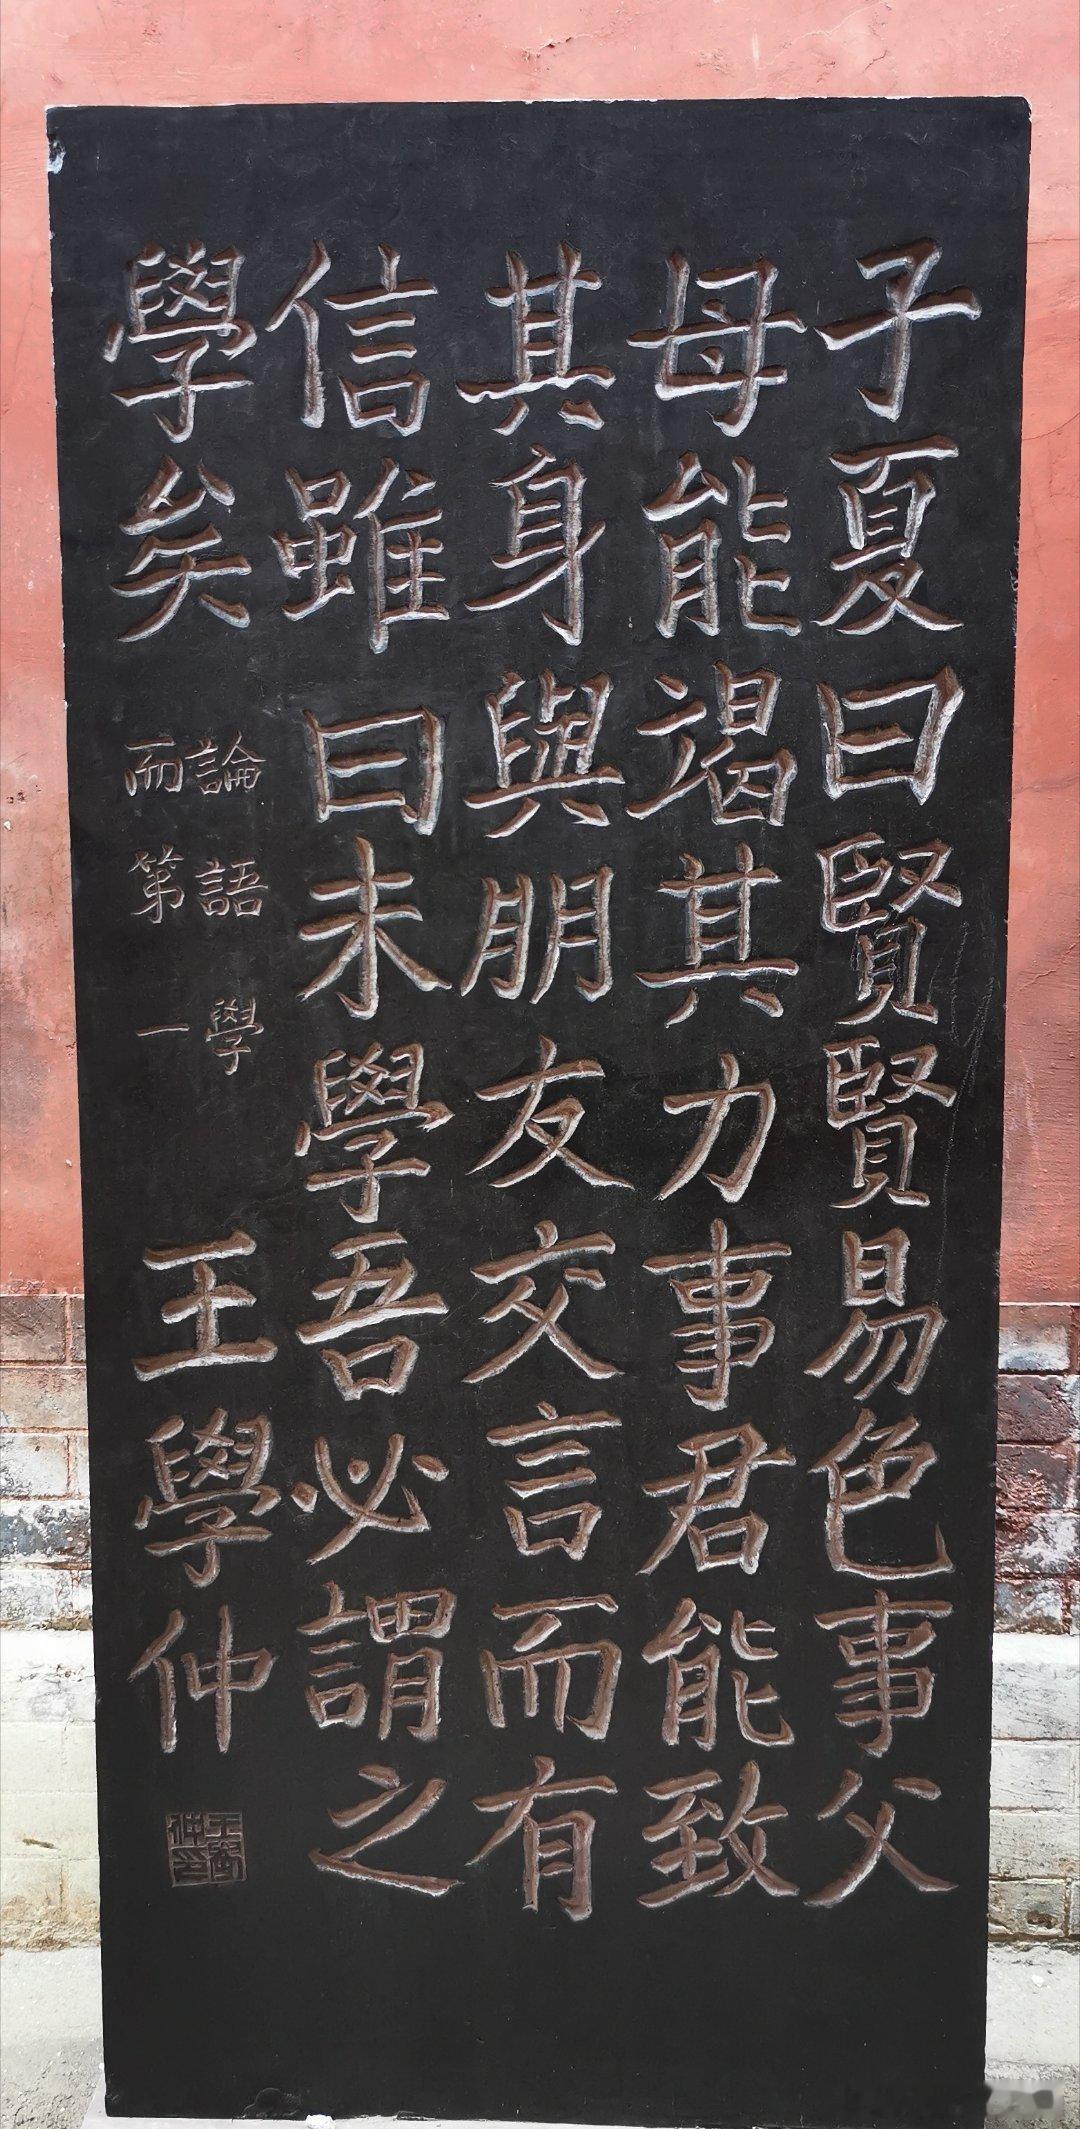 子夏曰賢賢易色事父
母能竭其力事君能致
其身與朋友交言而有
信雖曰未學吾必謂之
學矣
論語學
而第一
王學仲
王學仲印